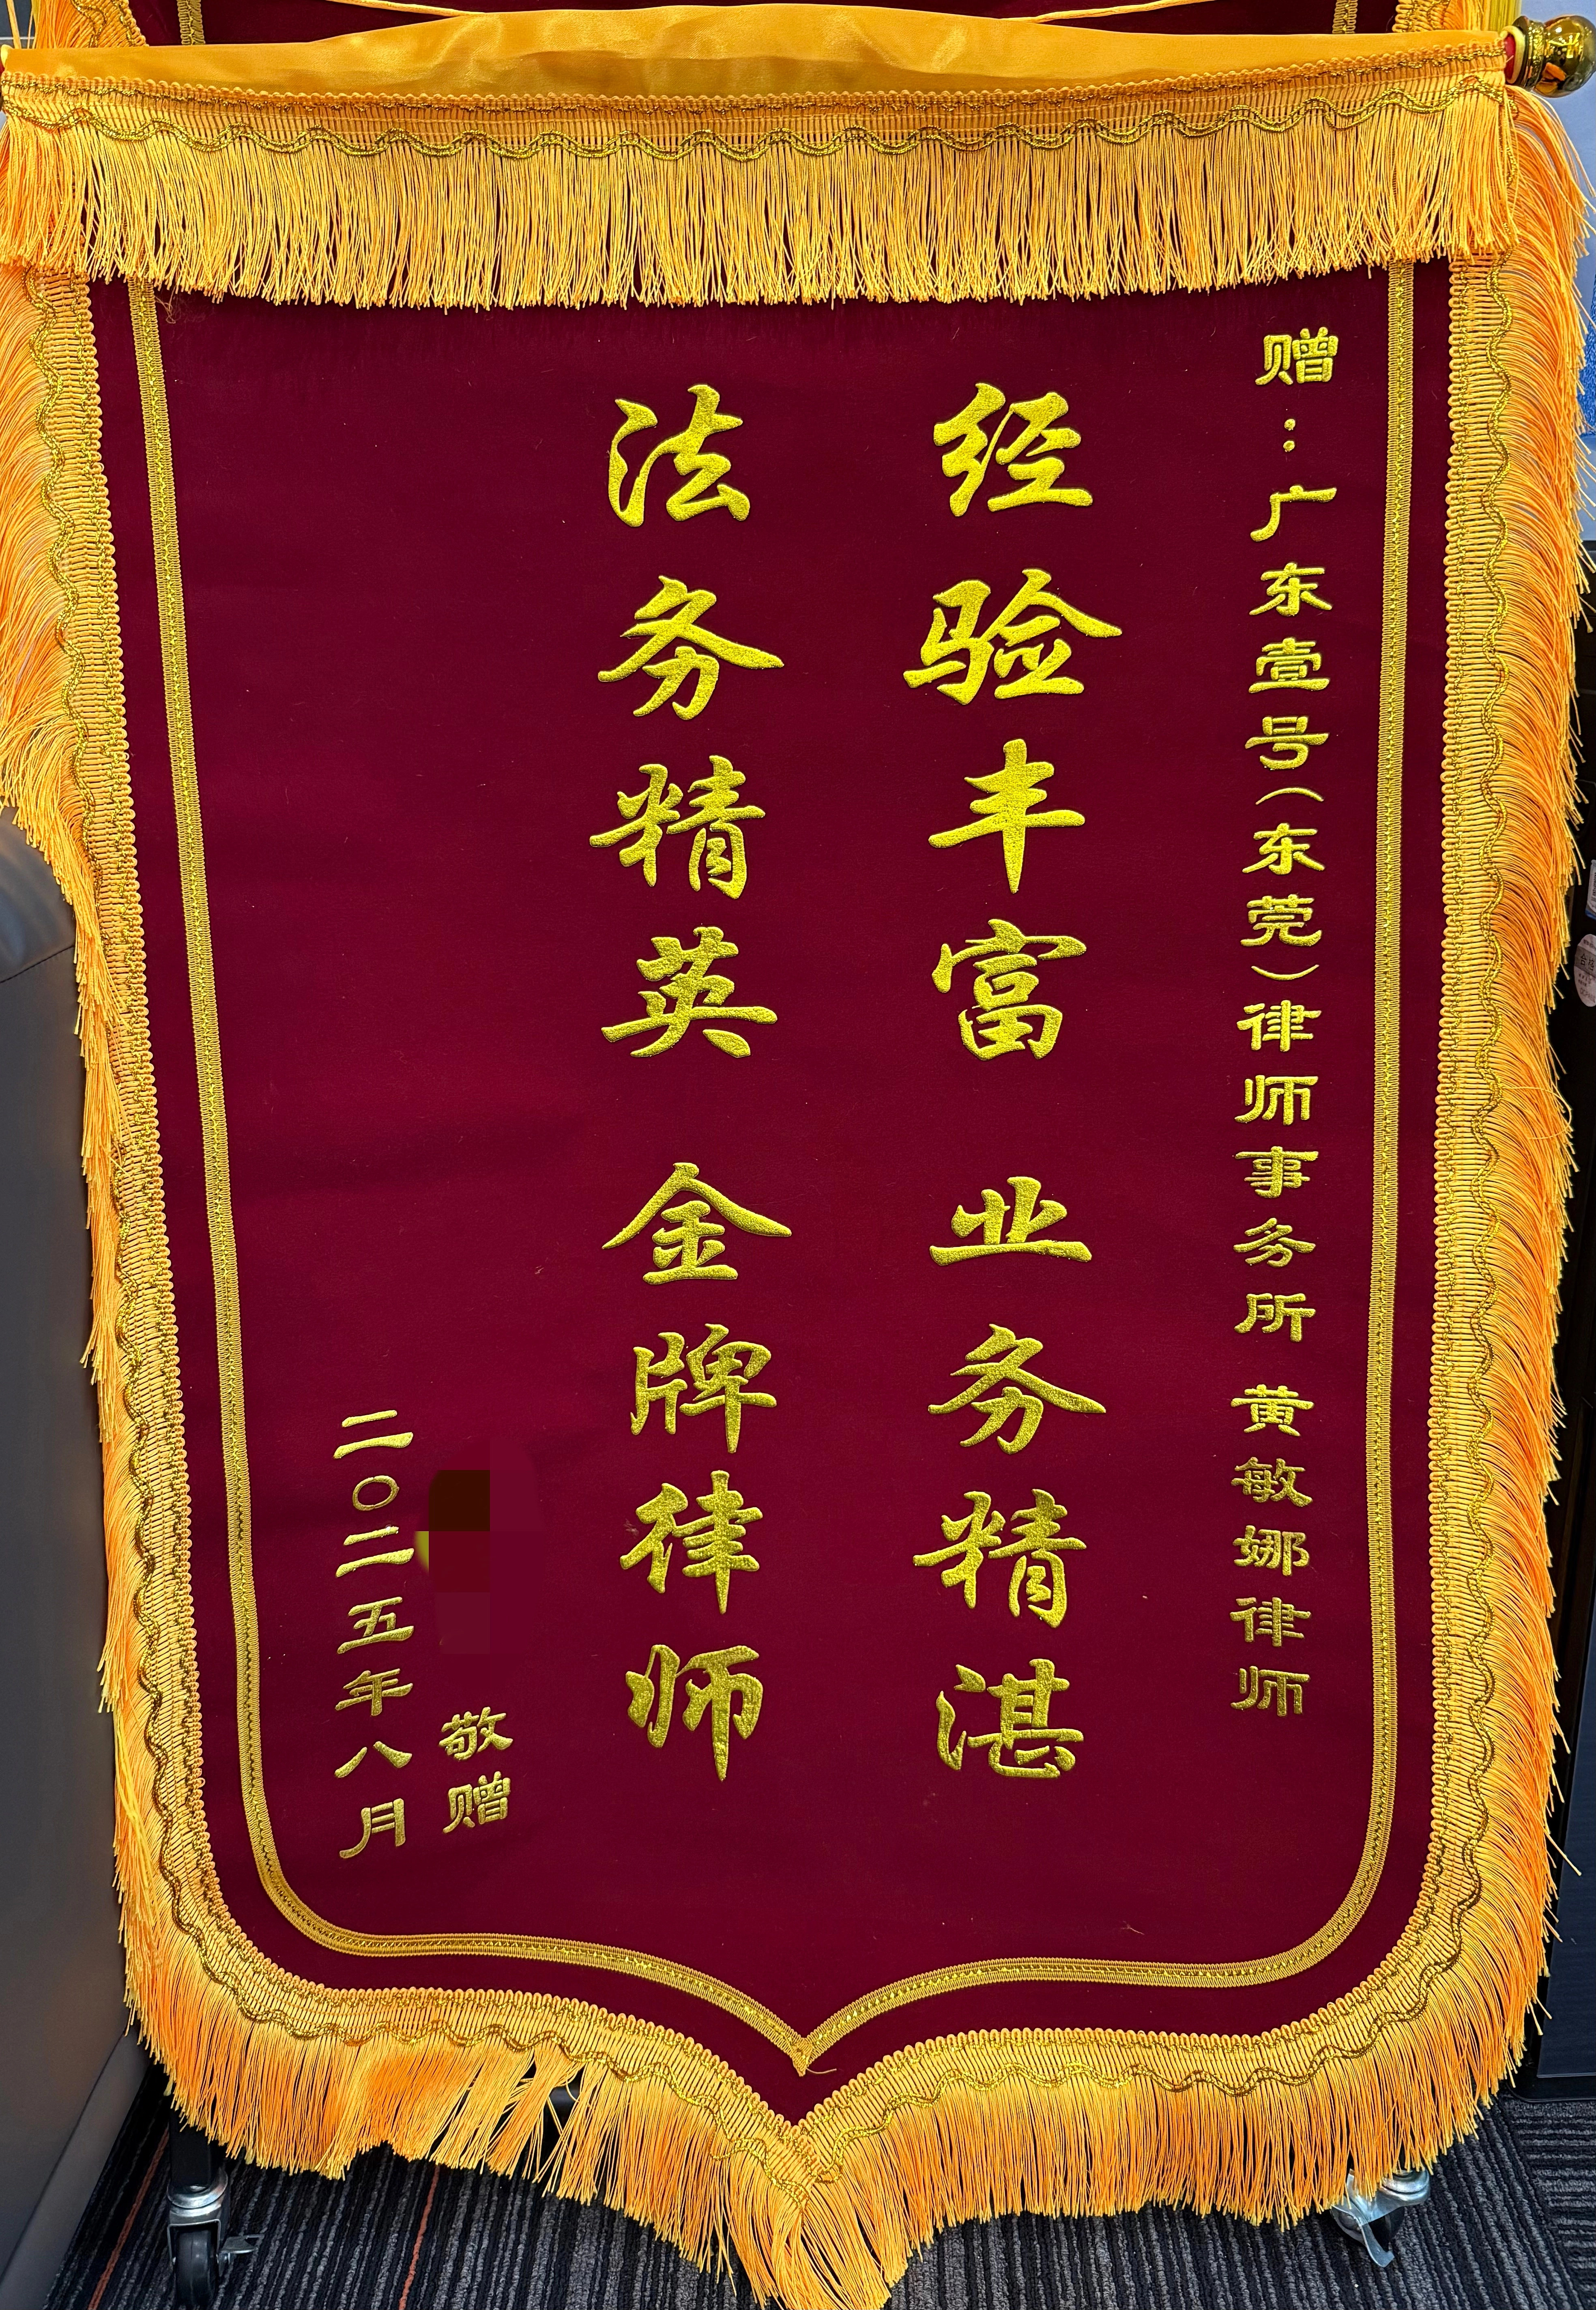 赠：广东壹号（东莞）律师事务所 黄敏娜律师
经验丰富 业务精湛
法务精英 金牌律师
敬赠
二〇二五年八月